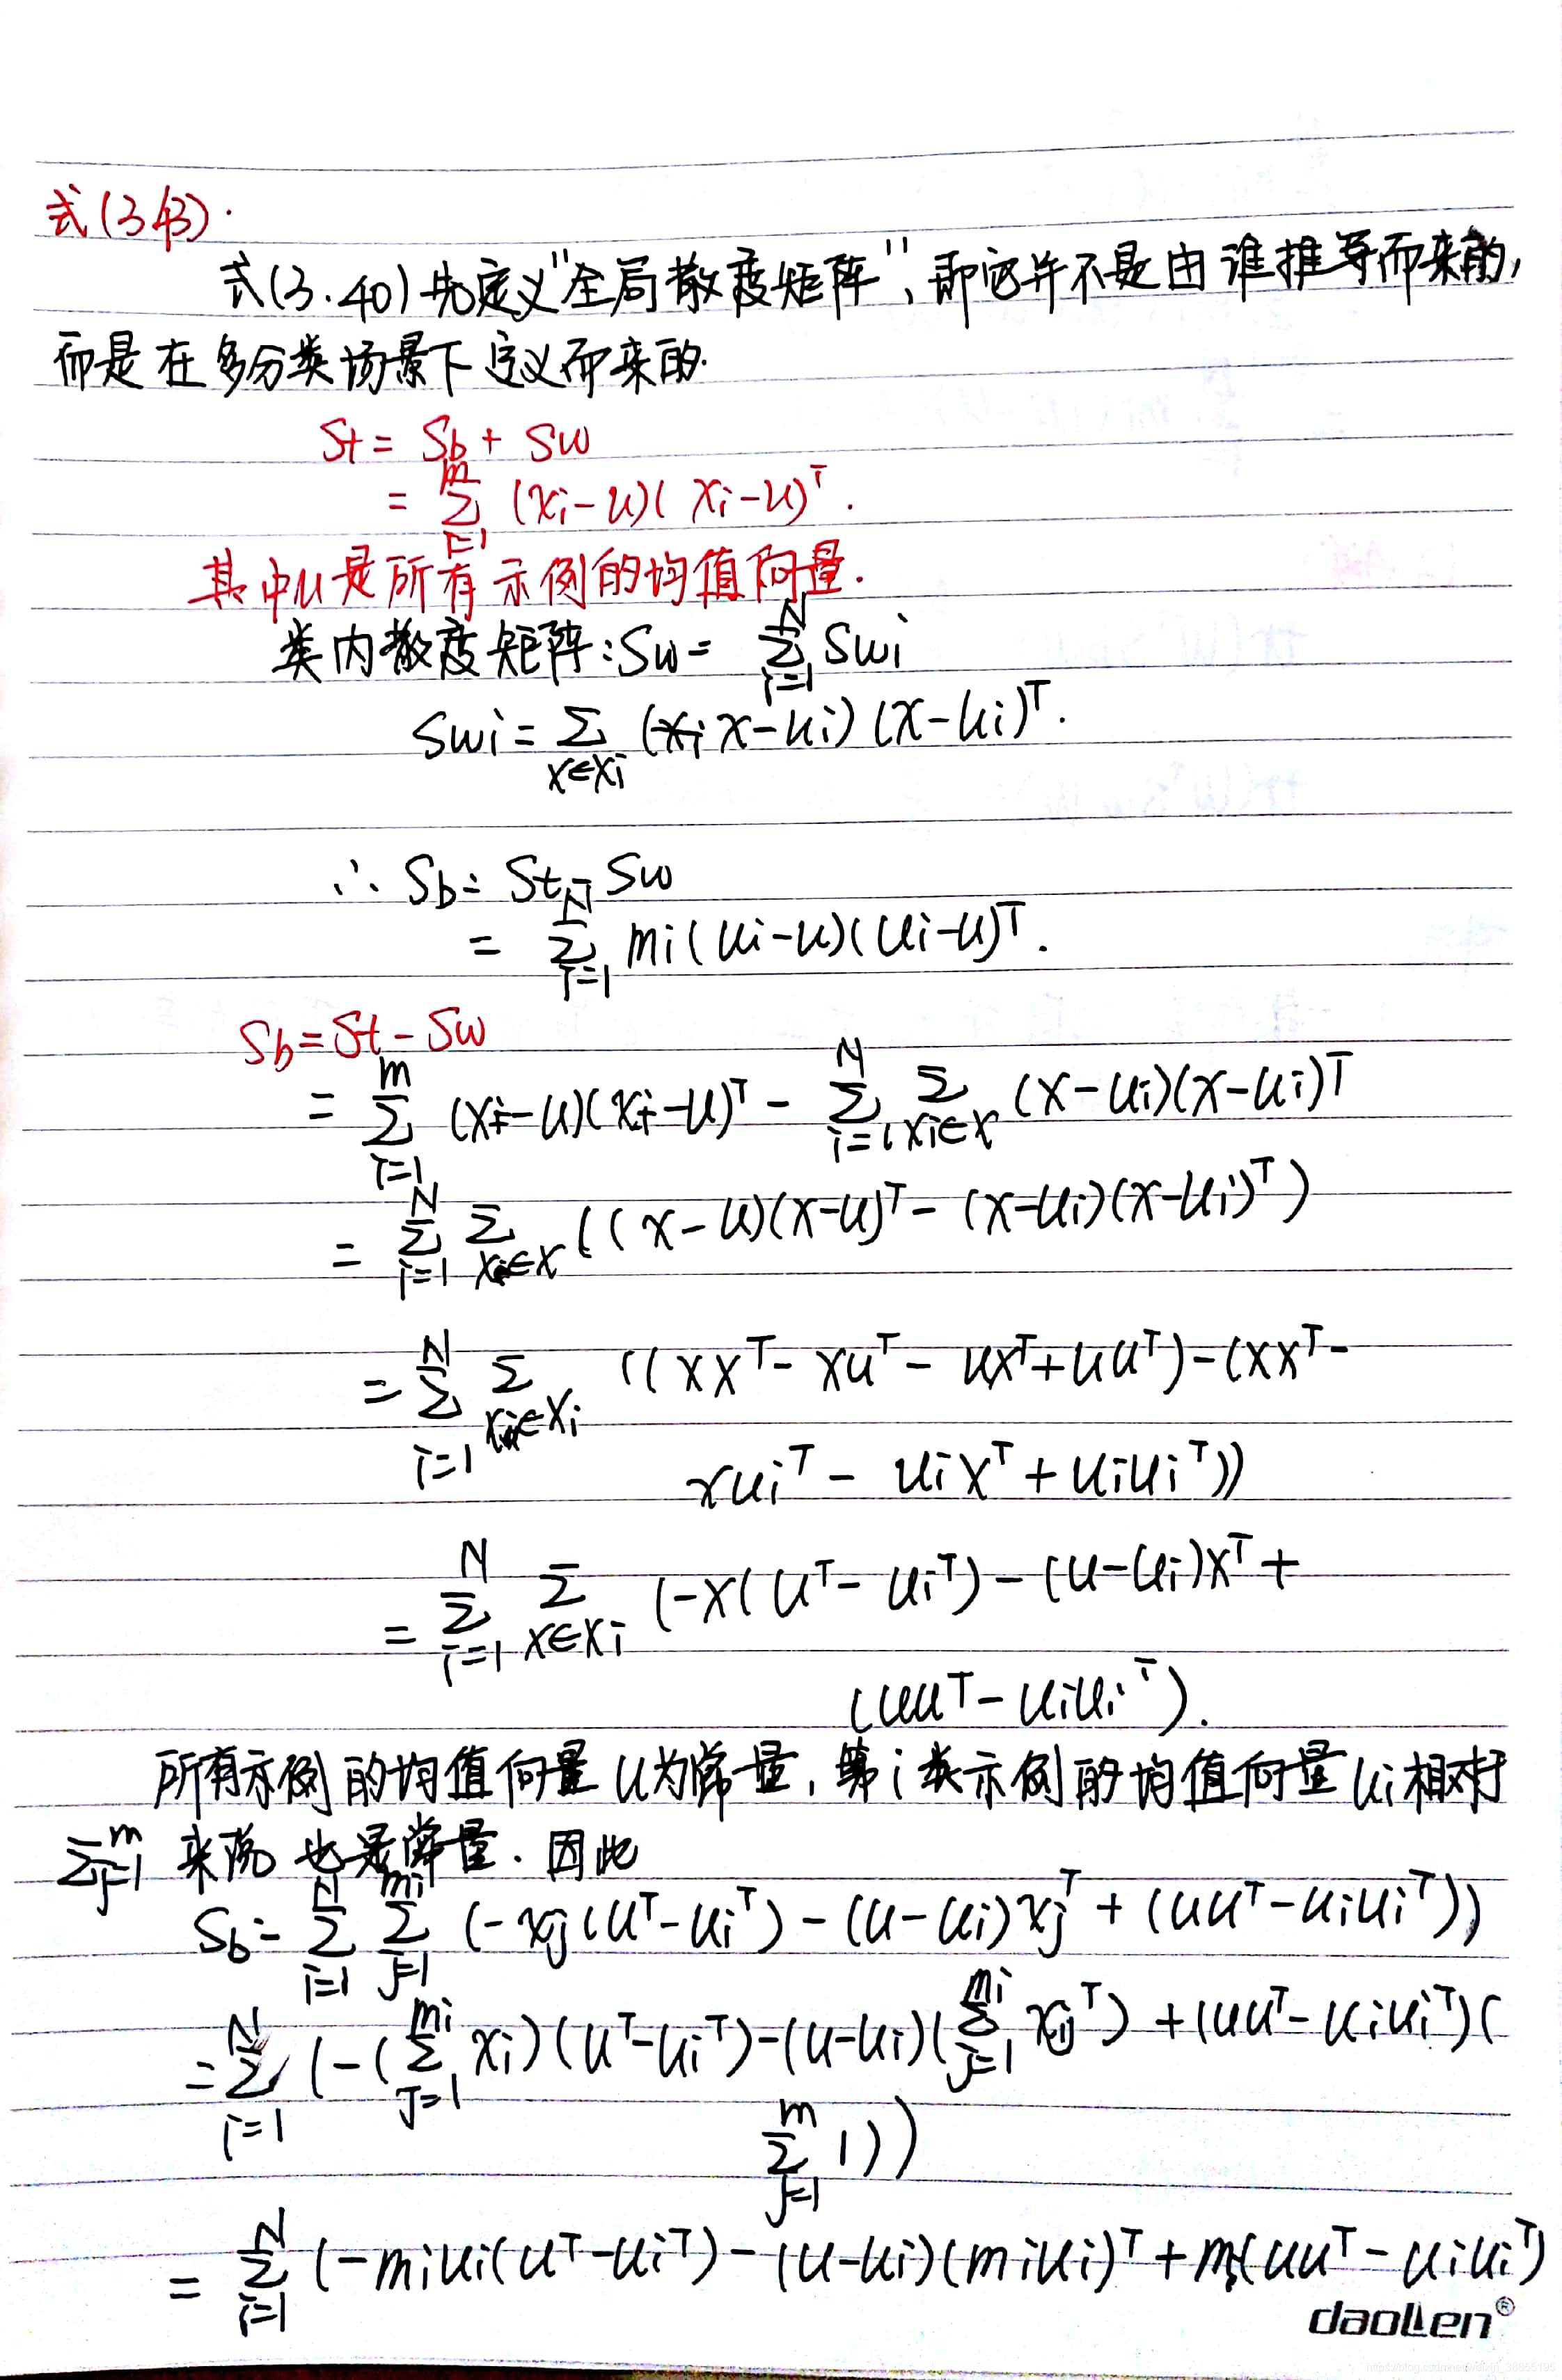 式(3.43).
式(3.40)先定义"全局散度矩阵",即它并不是由谁推导而来的,
而是在多分类场景下定义而来的.
St = Sb + Sw
= ∑_{i=1}^{m} (xi-u)(xi-u)^T.
其中u是所有示例的均值向量.
类内散度矩阵:Sw= ∑_{i=1}^{N} Swi
Swi = ∑_{x∈Xi} (x-ui)(x-ui)^T.
∴ Sb = St - Sw
= ∑_{i=1}^{N} mi(ui-u)(ui-u)^T.
Sb = St - Sw
= ∑_{i=1}^{m} (xi-u)(xi-u)^T - ∑_{i=1}^{N} ∑_{xi∈X} (x-ui)(x-ui)^T
= ∑_{i=1}^{N} ∑_{xi∈X} ((x-u)(x-u)^T - (x-ui)(x-ui)^T)
= ∑_{i=1}^{N} ∑_{xi∈Xi} ((xx^T - xu^T - ux^T + uu^T) - (xx^T -
xui^T - uix^T + uiui^T))
= ∑_{i=1}^{N} ∑_{x∈Xi} (-x(u^T - ui^T) - (u-ui)x^T +
(uu^T - uiui^T).
所有示例的均值向量u为常量,第i类示例的均值向量ui相对于
∑_{j=1}^{m} 来说也是常量.因此
Sb = ∑_{i=1}^{N} ∑_{j=1}^{mi} (-xj(u^T-ui^T) - (u-ui)xj^T + (uu^T-uiui^T))
= ∑_{i=1}^{N} (-(∑_{j=1}^{mi} xi)(u^T-ui^T) - (u-ui)(∑_{j=1}^{mi} xj^T) + (uu^T-uiui^T)(
∑_{j=1}^{m} 1))
= ∑_{i=1}^{N} (-miui(u^T-ui^T) - (u-ui)(miui)^T + mi(uu^T-uiui^T)
daollen®